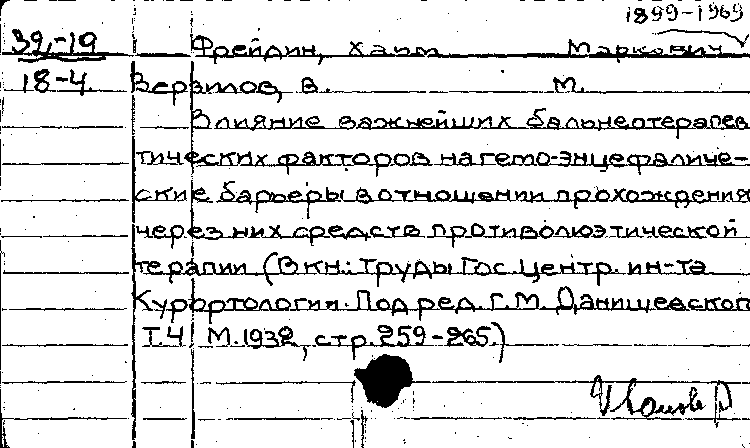 1899-1969
39,-19 Фрейдин, Хаим Маркович
18-4. Верзилов, В. М.
Влияние важнейших бальнеотерапев
тических факторов на гемо-энцефаличе-
ские барьеры в отношении прохождения
через них средств противолюэтической
терапии (В кн.: Труды Гос. Центр. ин-та
Курортологии. Под ред. Г. М. Данишевской
Т.4 М.1932, стр. 259-265.)